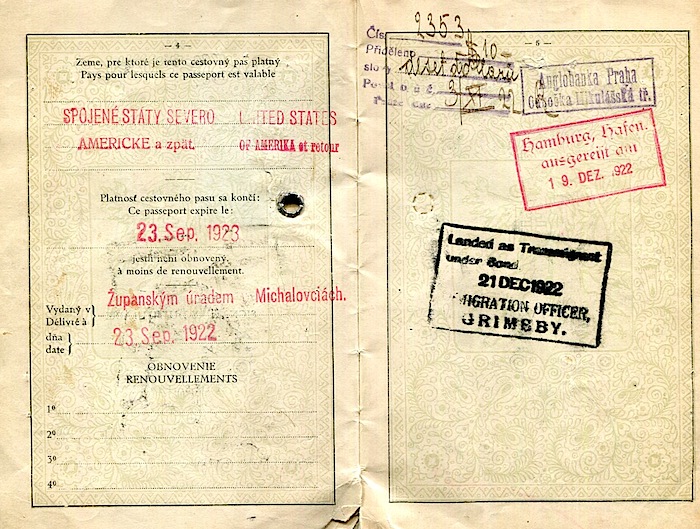 — 4 —
Zeme, pre ktoré je tento cestovný pas platný
Pays pour lesquels ce passeport est valable
SPOJENÉ STÁTY SEVERO UNITED STATES
AMERICKE a zpät. OF AMERIKA et retour
Platnosť cestovného pasu sa končí:
Ce passeport expire le:
23. Sep. 1923
jestli není obnovený,
à moins de renouvellement.
Vydaný v
Délivré à
Županským úradem Michalovciách.
dňa
date
23. Sep. 1922
OBNOVENIE
RENOUVELLEMENTS
1º
2º
3º
4º
— 5 —
Čís. 2353
Přiděleno $10-
slovy deset dolarů
3/XI 22
Anglobanka Praha
Hamburg, Hafen.
ausgereist am
19. DEZ. 1922
Landed as Transmigrant
under Bond
21 DEC 1922
IGRATION OFFICER,
GRIMSBY.